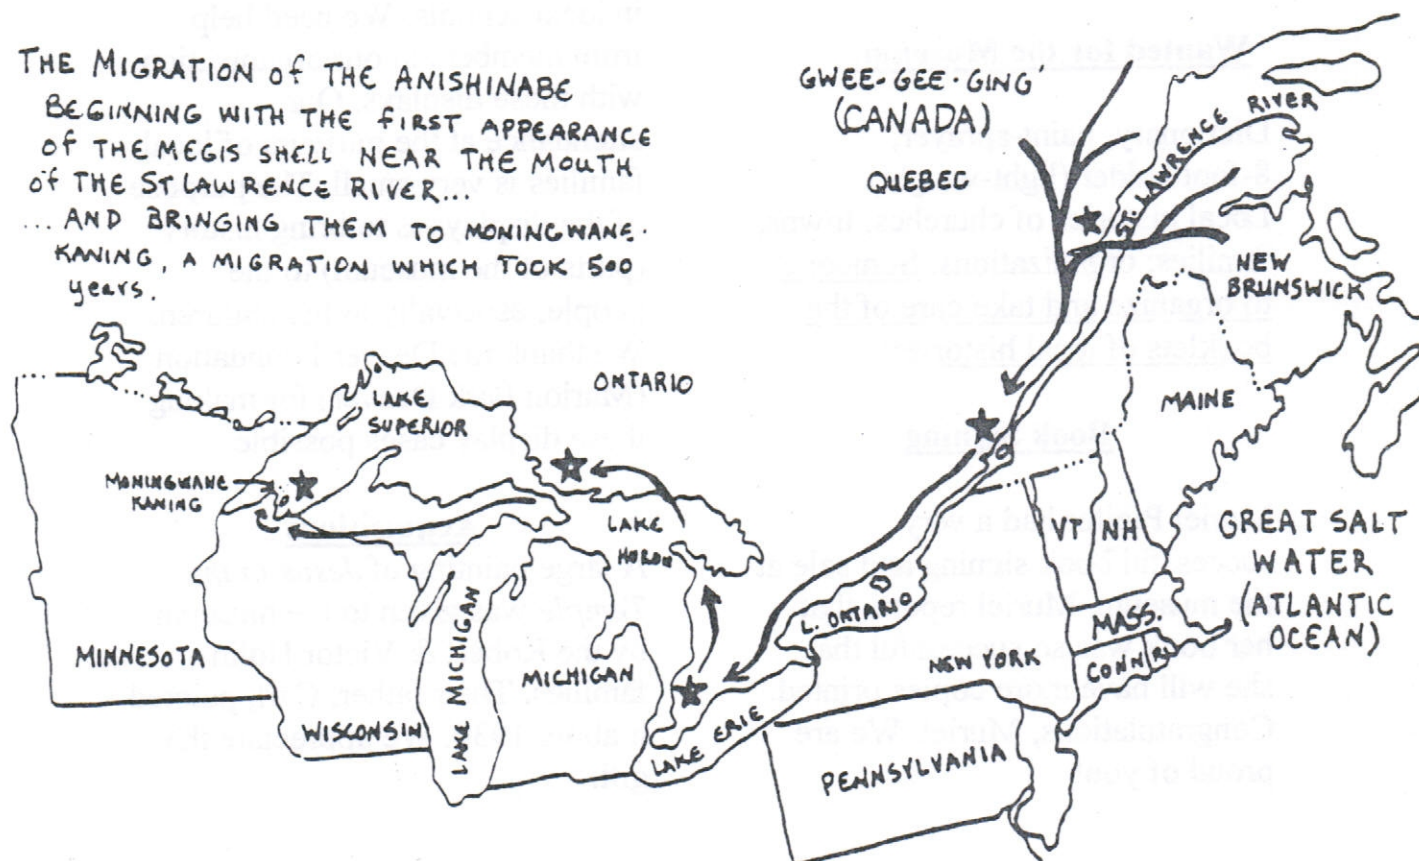 THE MIGRATION of THE ANISHINABE
BEGINNING WITH THE FIRST APPEARANCE
of THE MEGIS SHELL NEAR THE MOUTH
of THE ST. LAWRENCE RIVER...
...AND BRINGING THEM TO MONINGWANE-
KANING, A MIGRATION WHICH TOOK 500
years.
GWEE-GEE-GING'
(CANADA)
QUEBEC
ST. LAWRENCE RIVER
NEW
BRUNSWICK
MAINE
ONTARIO
LAKE
SUPERIOR
MONINGWANE
KANING
LAKE
HORON
VT
NH
GREAT SALT
WATER
(ATLANTIC
OCEAN)
MASS.
CONN
L. ONTARIO
NEW YORK
MINNESOTA
LAKE MICHIGAN
MICHIGAN
WISCONSIN
LAKE ERIE
PENNSYLVANIA